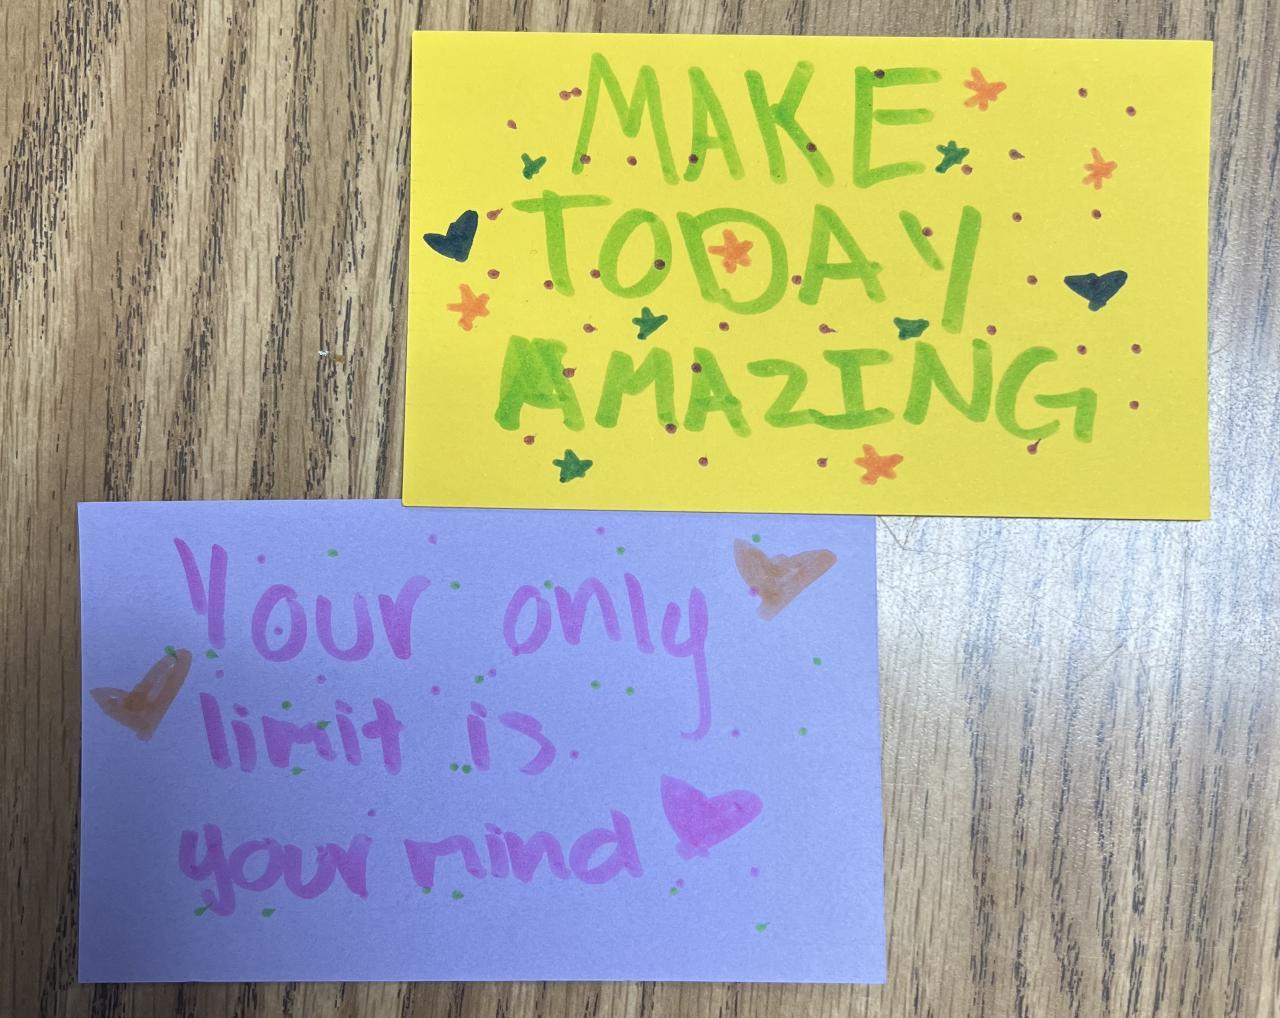 MAKE
TODAY
AMAZING
Your only
limit is
your mind